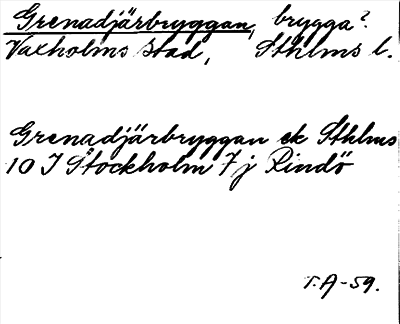 Grenadjärbryggan, brygga?
Vaxholms stad, Sthlms l.
Grenadjärbryggan ek Sthlms
10 I Stockholm 7 j Rindö
T.A-59.